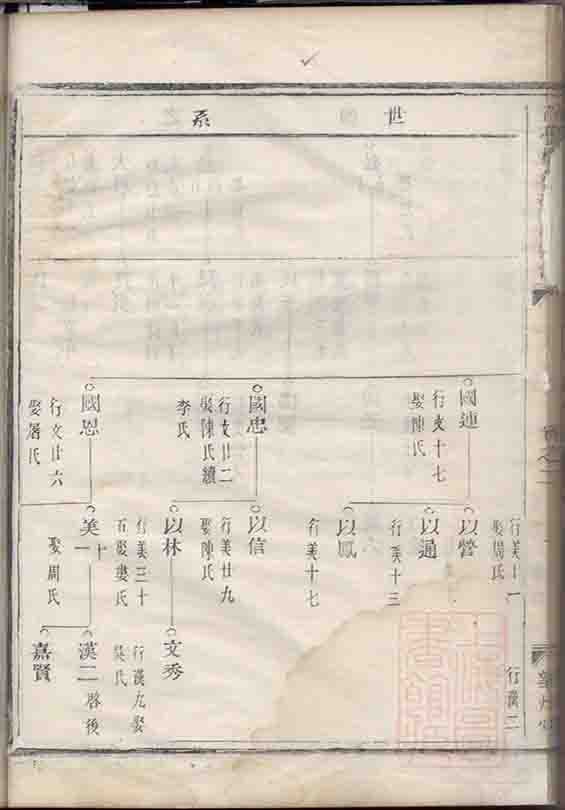 世系
國連
行文十七
娶陳氏
國忠
行文廿二
娶陳氏續
李氏
國恩
行文廿六
娶屠氏
以營
行美十一
娶周氏
以通
行美十三
以鳳
行美十七
以信
行美廿九
娶陳氏
以林
行美三十
娶婁氏
美十一
娶周氏
行漢二
文秀
行漢九娶
氏
漢二
啓後
嘉賢